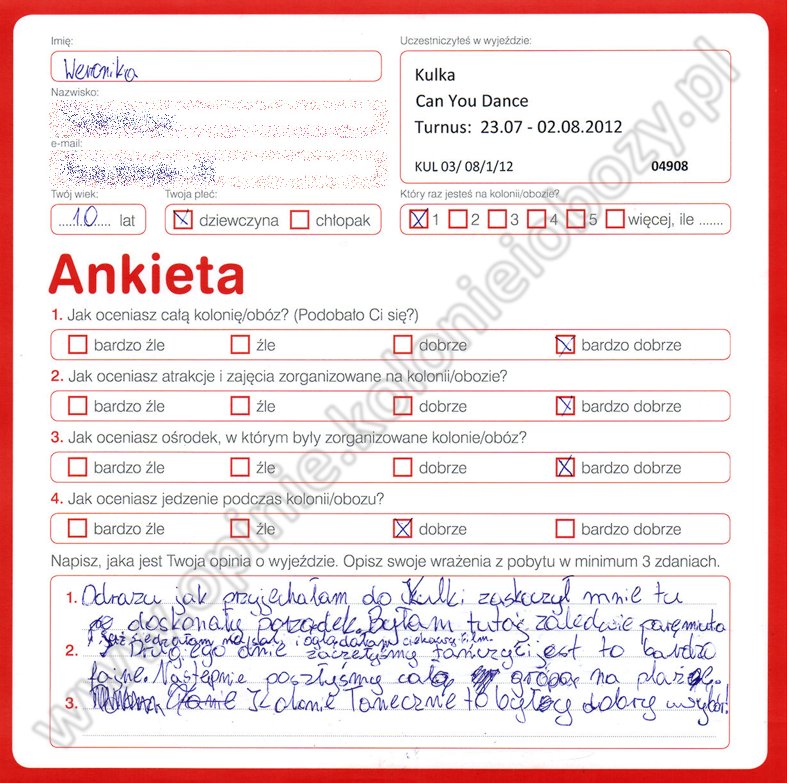 Imię:
Weronika
Nazwisko:
e-mail:
Twój wiek:
10 lat
Twoja płeć:
dziewczyna chłopak
Uczestniczyłeś w wyjeździe:
Kulka
Can You Dance
Turnus: 23.07 - 02.08.2012
KUL 03/ 08/1/12 04908
Który raz jesteś na kolonii/obozie?
1 2 3 4 5 więcej, ile .......
Ankieta
1. Jak oceniasz całą kolonię/obóz? (Podobało Ci się?)
bardzo źle źle dobrze bardzo dobrze
2. Jak oceniasz atrakcje i zajęcia zorganizowane na kolonii/obozie?
bardzo źle źle dobrze bardzo dobrze
3. Jak oceniasz ośrodek, w którym były zorganizowane kolonie/obóz?
bardzo źle źle dobrze bardzo dobrze
4. Jak oceniasz jedzenie podczas kolonii/obozu?
bardzo źle źle dobrze bardzo dobrze
Napisz, jaka jest Twoja opinia o wyjeździe. Opisz swoje wrażenia z pobytu w minimum 3 zdaniach.
1. Odrazu jak przyjechałam do Kulki zaskoczył mnie tu
doskonały porządek. Byłam tutaj zaledwie paręminuta
i już siedziałam na sali i oglądałam ciekawy film.
2. Drugiego dnie zaczełyśmy tańczyć i jest to bardzo
fajne. Następnie poszłyśmy całą grópą na plażę.
3. Kolonie Taneczne to był dobry wybór!
www.opinie.kolonieiobozy.pl